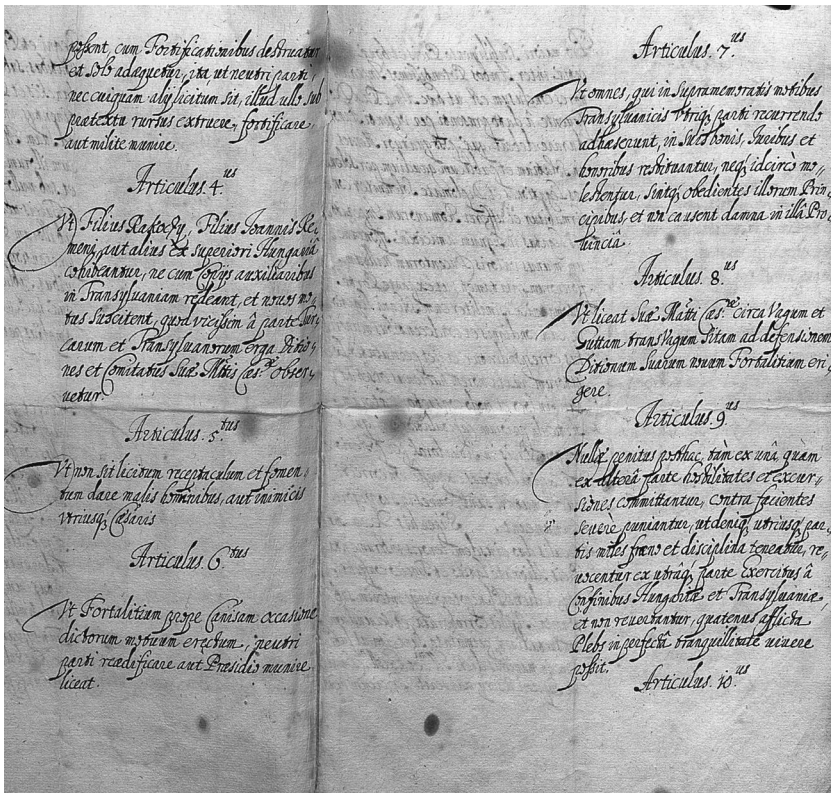 possint, cum Fortificationibus destruatur
et solo adæquetur, ita ut neutri parti,
nec cuiquam alij licitum sit, illud ullo sub
prætextu rursus extruere, fortificare,
aut milite munire.
Articulus. 4.us
Vt Filius Rakoczy, Filius Ioannis Ke-
meny, aut alius ex superiori Hungariâ
cohibeantur, ne cum Copijs auxiliaribus
in Transyluaniam redeant, et nouos mo-
tus suscitent, quod vicissim â parte Tur-
carum et Transyluanorum erga Ditio-
nes et Comitatus Suæ Mttis Cæs.æ obser-
uetur.
Articulus. 5.tus
Vt non sit licitum receptaculum et fomen-
tum dare malis hominibus, aut inimicis
vtriusq. Cæsaris
Articulus. 6.tus
Vt Fortalitium prope Canisam occasione
dictorum motuum erectum, neutri
parti reædificare aut Præsidio munire
liceat.
Articulus. 7.us
Vt omnes, qui in supramemoratis motibus
Transyluanicis vtriq. parti recurrendo
adhæserunt, in suis bonis, Iuribus et
honoribus restituantur, neq. idcircò mo-
lestentur, sintq. obedientes illorum Prin-
cipibus, et non causent damna in illâ Pro-
uinciâ.
Articulus. 8.us
Vt liceat Suæ Matti Cæs.æ circa Vagum et
Guttam trans Vagum sitam ad defensionem
Ditionum Suarum nouum Fortalitium eri-
gere.
Articulus. 9.us
Nullæ penitus posthac, tàm ex unâ, quàm
ex alterâ parte hostilitates et excur-
siones committantur, contra facientes
seuere puniantur, ut deniq. utriusq. par-
tis miles fræno et disciplina teneatur, re-
uocentur ex utrâq. parte Exercitus â
Confinibus Hungariæ et Transyluaniæ
et non reuertantur, quatenus afflicta
Plebs in perfectâ tranquillitate uiuere
possit.
Articulus. 10.us